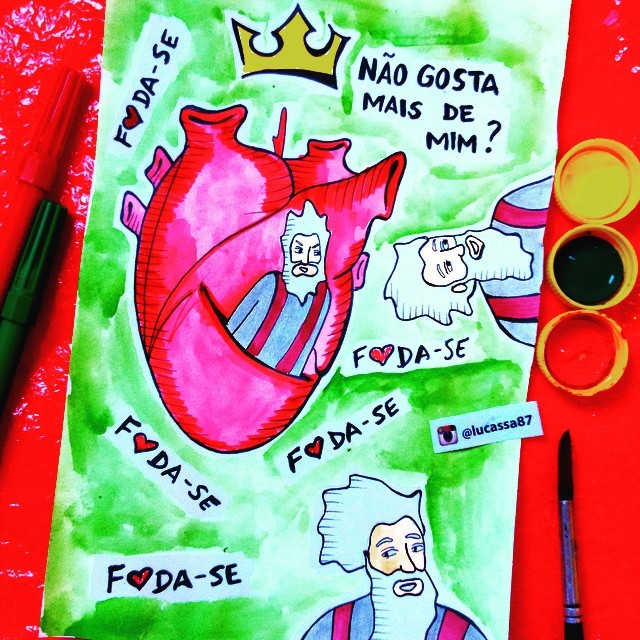 F❤DA-SE
NÃO GOSTA
MAIS DE
MIM?
F❤DA-SE
F❤DA-SE
F❤DA-SE
@lucassa87
F❤DA-SE